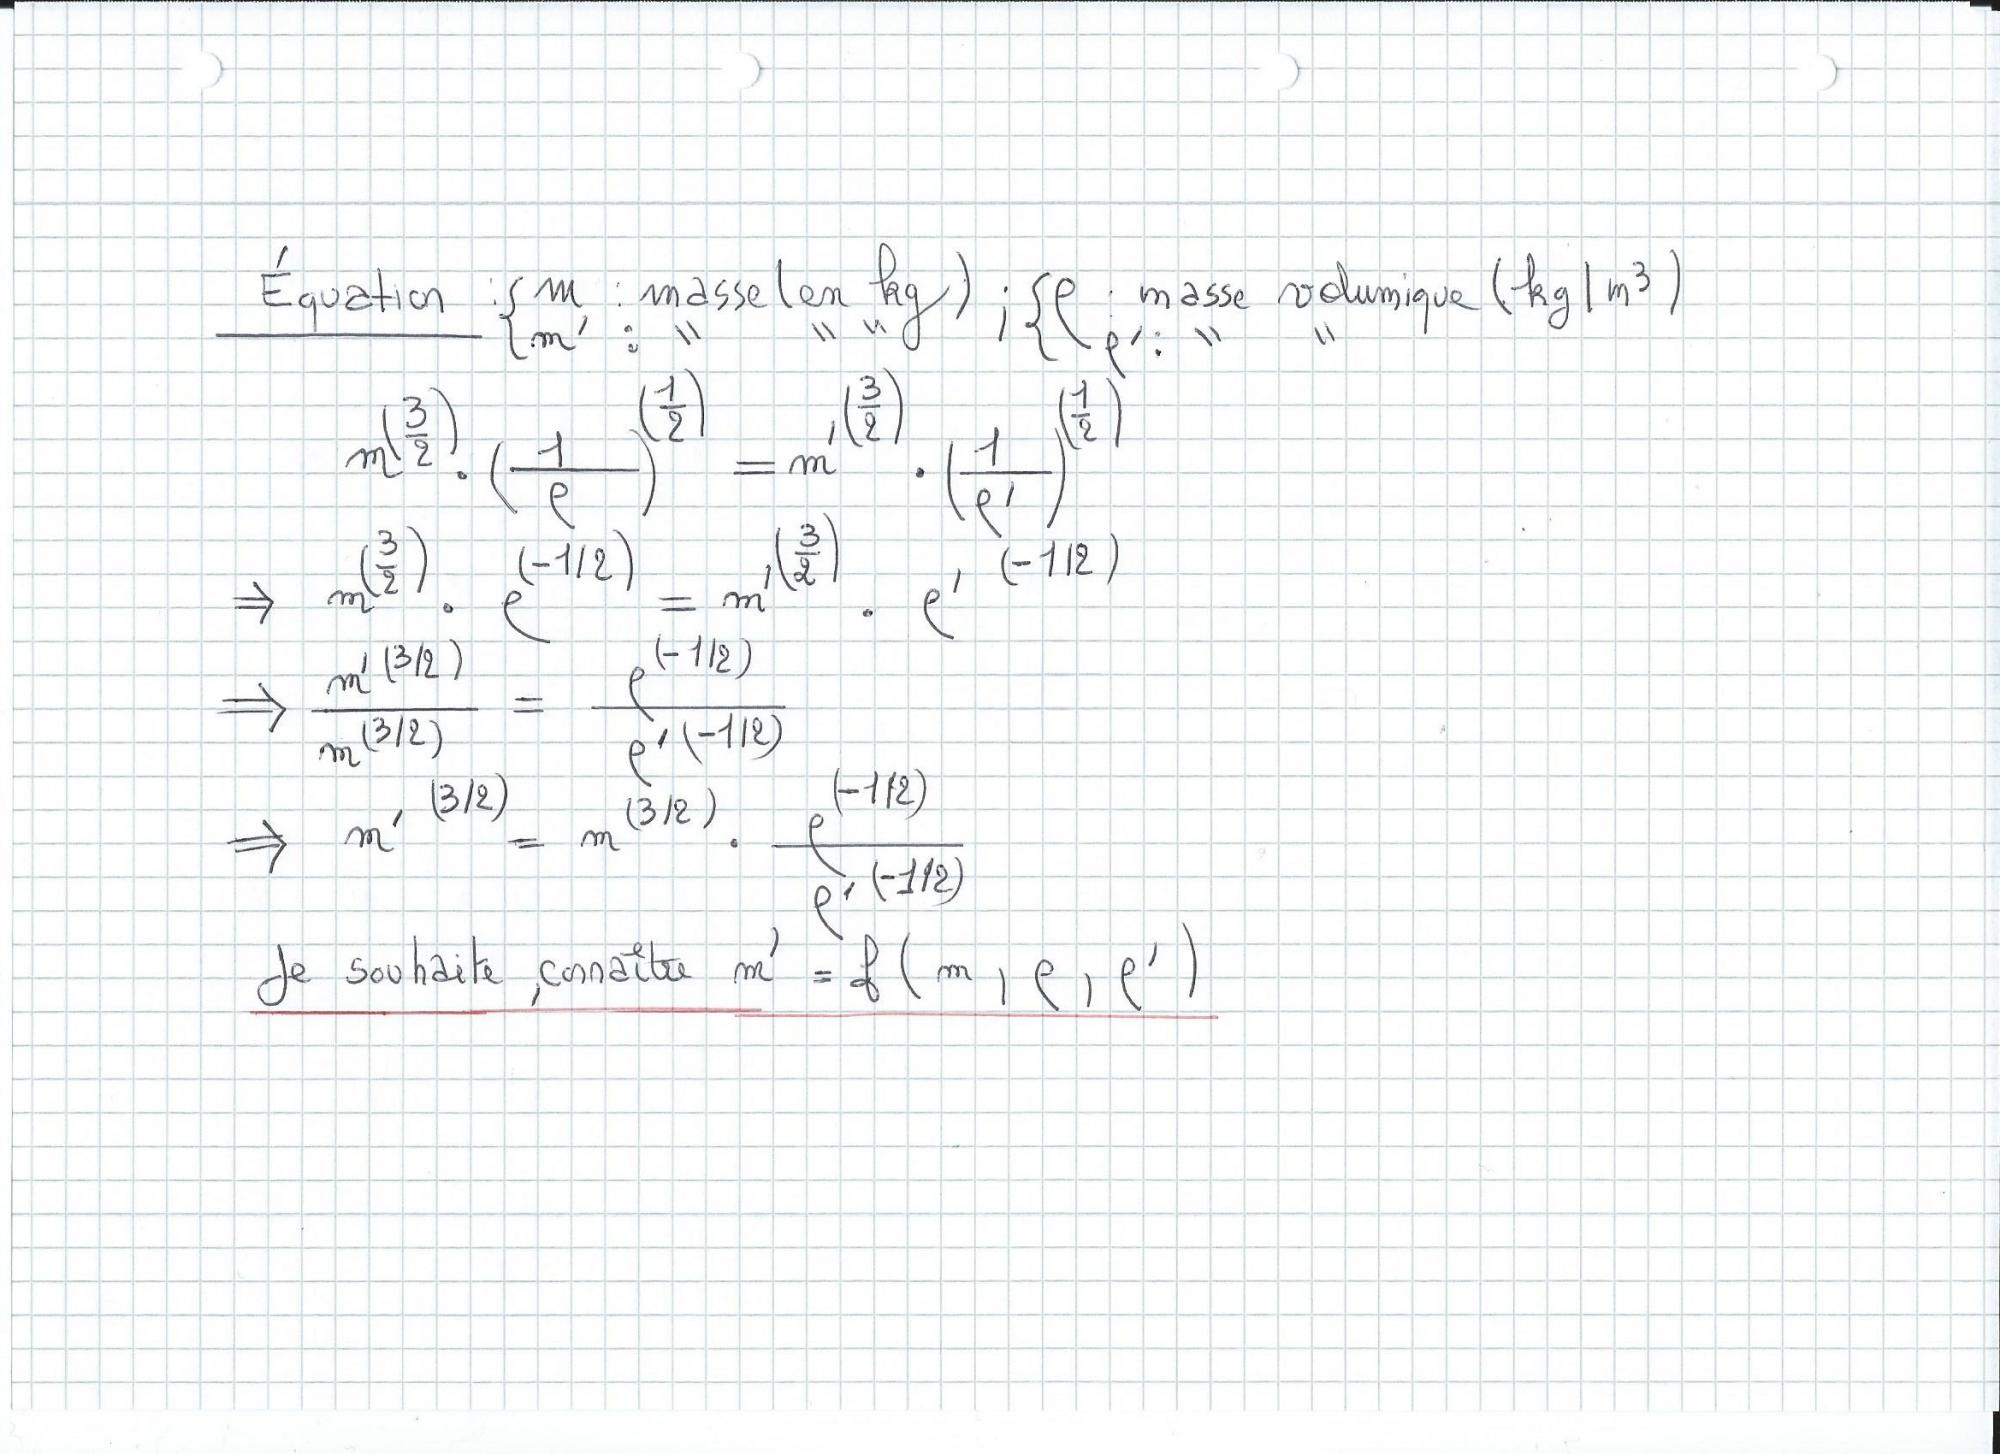 Équation : { m : masse (en kg) ; { ρ : masse volumique (kg/m³)
m' : " " " ρ' : " "
m^(3/2) . (1/ρ)^(1/2) = m'^(3/2) . (1/ρ')^(1/2)
⇒ m^(3/2) . ρ^(-1/2) = m'^(3/2) . ρ'^(-1/2)
⇒ m'^(3/2) / m^(3/2) = ρ^(-1/2) / ρ'^(-1/2)
⇒ m'^(3/2) = m^(3/2) . ρ^(-1/2) / ρ'^(-1/2)
Je souhaite, connaître m' = f(m, ρ, ρ')